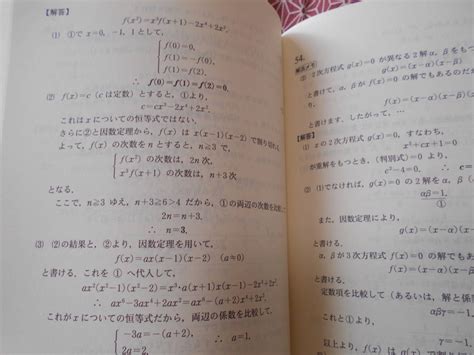 【解答】
f(x²)=x³f(x+1)-2x⁴+2x².
(1) ①で x=0, -1, 1 として,
f(0)=0,
f(1)=-f(0),
f(1)=f(2).
∴ f(0)=f(1)=f(2)=0.
(2) f(x)=c (c は定数) とすると, ①より,
c=cx³-2x⁴+2x².
これは x についての恒等式ではない.
さらに②と因数定理から, f(x) は x(x-1)(x-2) で割り切れ
よって, f(x) の次数を n とすると, n≧3 で,
f(x²) の次数は, 2n 次,
x³f(x+1) の次数は, n+3 次
となる.
ここで, n≧3 ゆえ, n+3≧6>4 だから, ①の両辺の次数を比較して,
2n=n+3.
∴ n=3.
(3) (2)の結果と, ②より, 因数定理を用いて,
f(x)=ax(x-1)(x-2) (a≠0)
と書ける. これを ① へ代入して,
ax²(x²-1)(x²-2)=x³・a(x+1)x(x-1)-2x⁴+2x².
∴ ax⁶-3ax⁴+2ax²=ax⁶-(a+2)x⁴+2x².
これが x についての恒等式だから, 両辺の係数を比較して,
-3a=-(a+2),
2a=2.
54.
解法メモ
(2) 2次方程式 g(x)=0 が異なる2解 α, βを
g(x)=(x-α)(x-β)
と書けて, α, β が f(x)=0 の解でもあるのだか
f(x)=(x-α)(x-β)
と書けます. したがって, …
【解答】
(1) x の2次方程式 g(x)=0, すなわち,
x²+cx+1=0
が重解をもつとき, (判別式)=0 より,
c²-4=0, ∴ c=
(2) (1)でなければ, g(x)=0 の2解を α, β
αβ=1.
g(x)=(x-α)
また, 因数定理から,
α, β が3次方程式 f(x)=0 の解でも
f(x)=(x-α)
と書ける.
定数項を比較して (あるいは, 解と係
αβγ=-1.
これと①より,
γ=-1